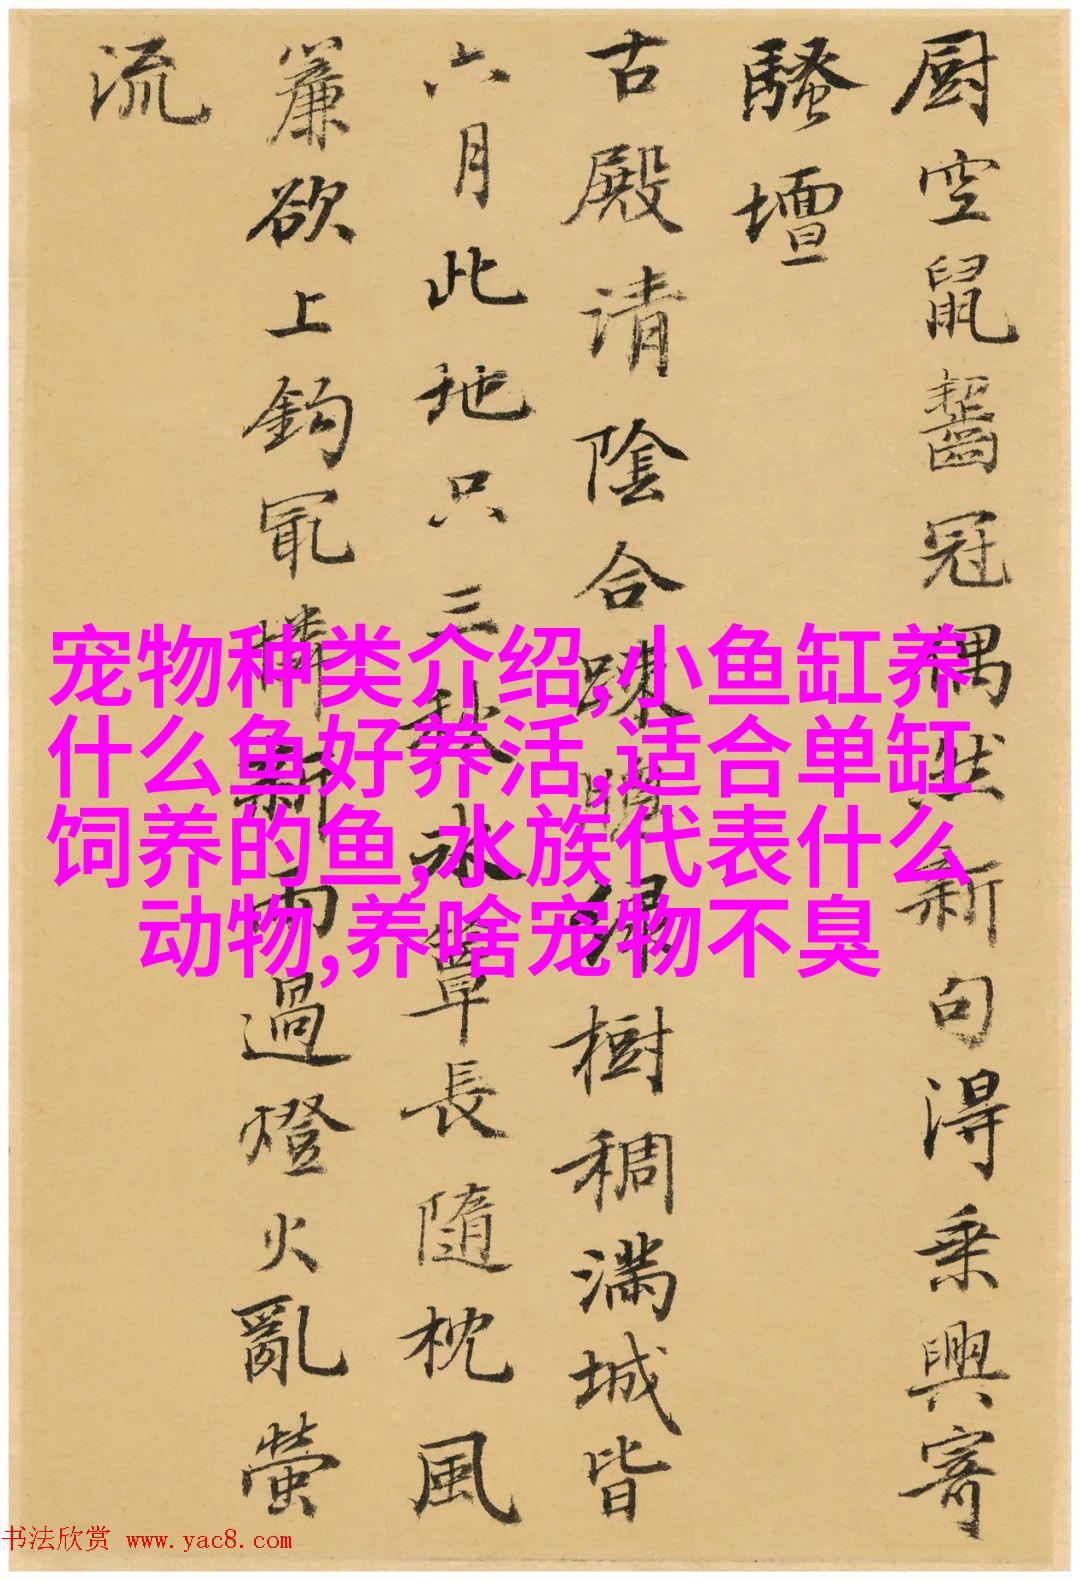 厨空鼠齧冠偶然新句得乗興寄
騷壇
古殿请陰合踈簾樹稠滿城皆
六月此地只三秋冰簟長隨枕風
簾欲上鉤冣憐新雨過燈火亂螢
流
宠物种类介绍,小鱼缸养
什么鱼好养活,适合单缸
饲养的鱼,水族代表什么
动物,养啥宠物不臭
书法欣赏 www.yac8.com